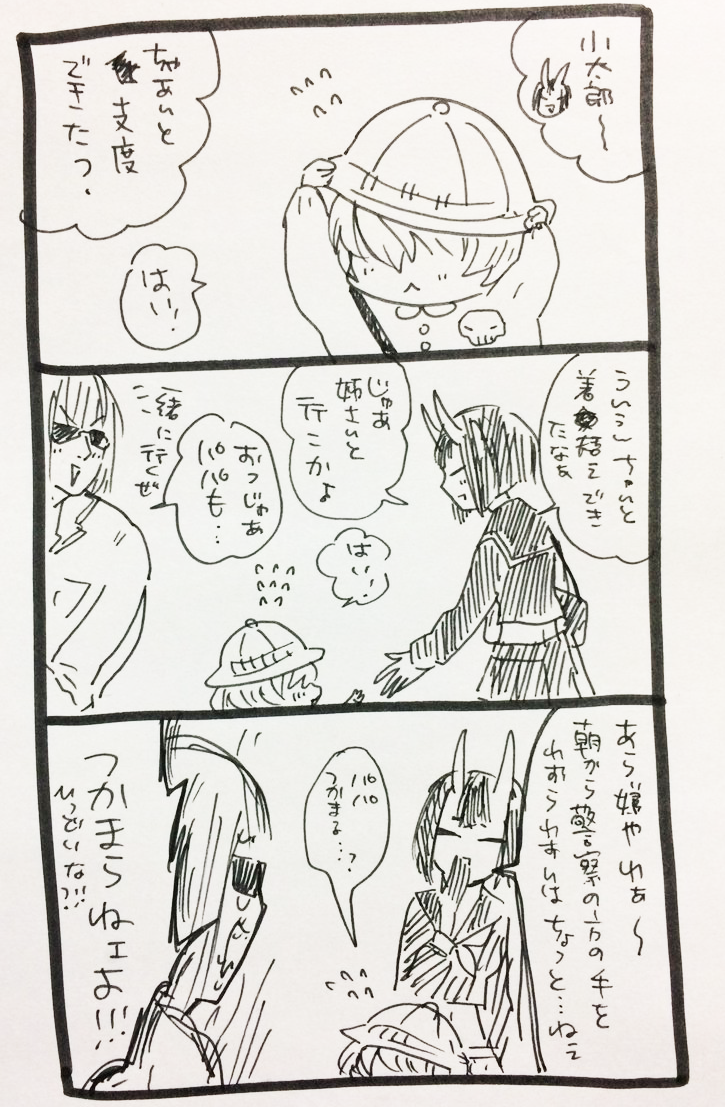 小太郎〜
ちゃあんと
支度
できたっ.
はい!
ういこちゃんと
着替えでき
たなぁ
じゃあ
姉さんと
行こかよ
はい!
おっじゃあ
パパも…
一緒に行くぜ
あら嫌やわぁ〜
朝から警察の方の手を
わずらわすんはちょっと…ねぇ
パパ
つかまる…?
つかまらねェよ!!!
ひっどいな!!!